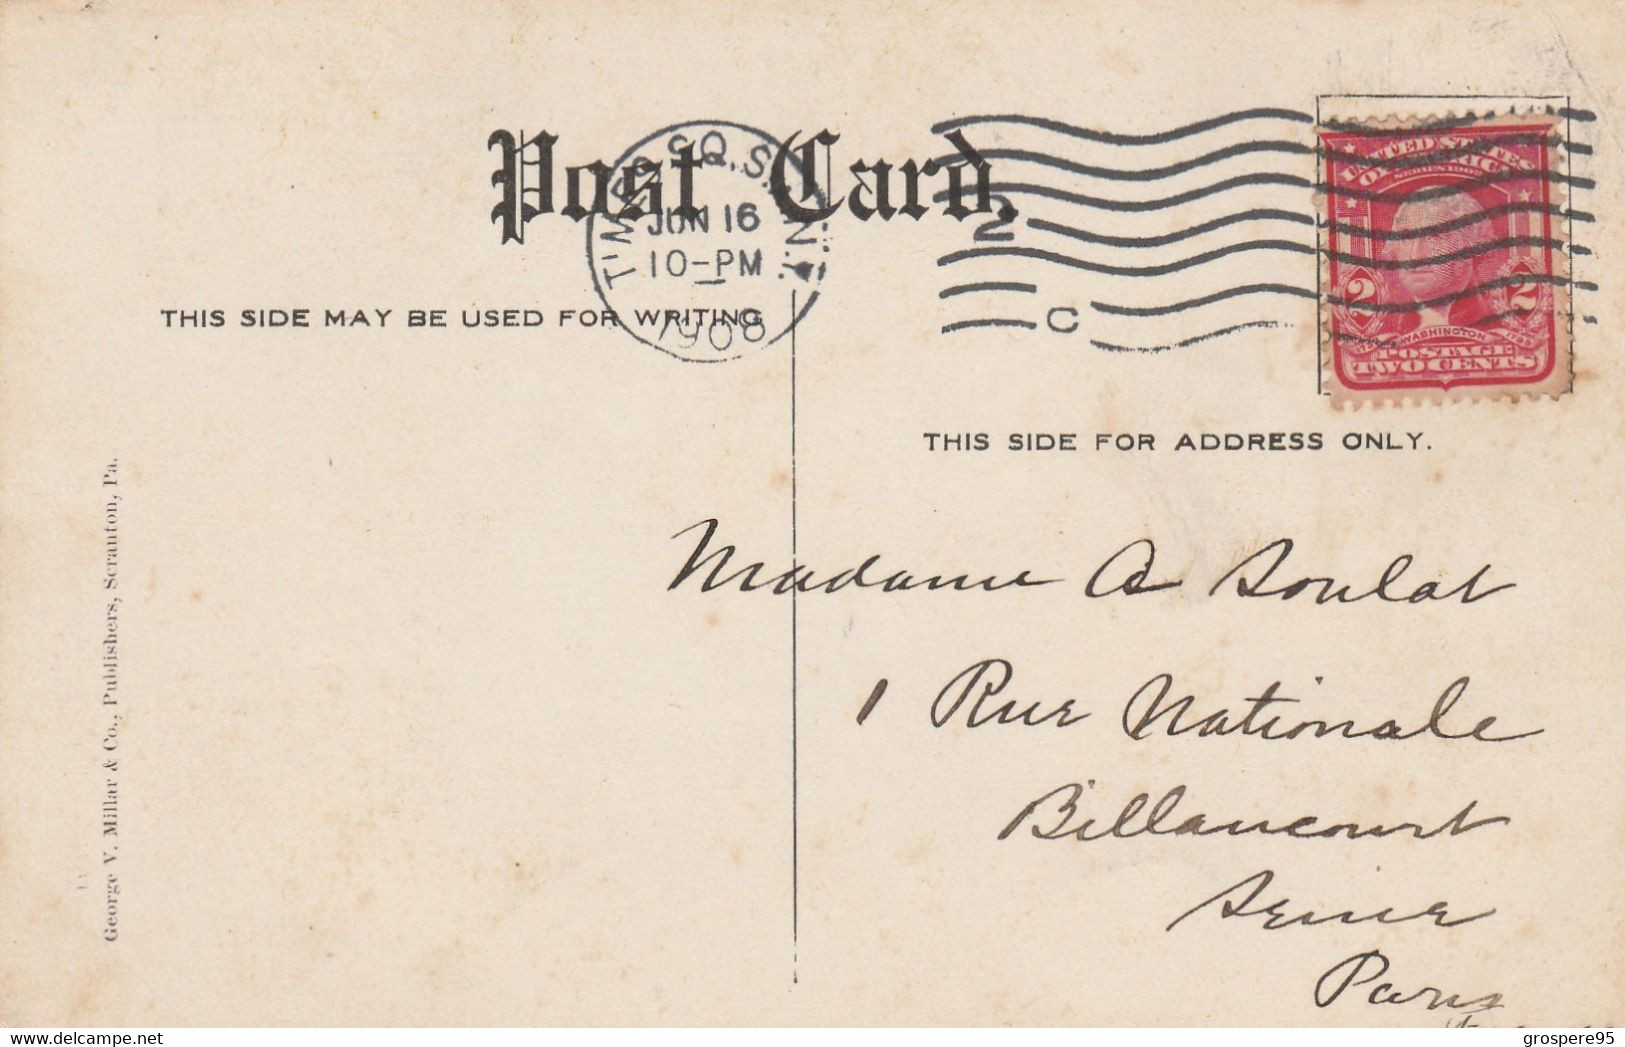 Post Card.
TIMES SQ. STA. N.Y.
JUN 16
10-PM
1908
2
C
UNITED STATES
OF AMERICA
SERIES 1902
2 2
WASHINGTON
POSTAGE
TWO CENTS
THIS SIDE MAY BE USED FOR WRITING
THIS SIDE FOR ADDRESS ONLY.
George V. Millar & Co., Publishers, Scranton, Pa.
Madame A Soulat
1 Rue Nationale
Billancourt
Seine
Paris
grospere95